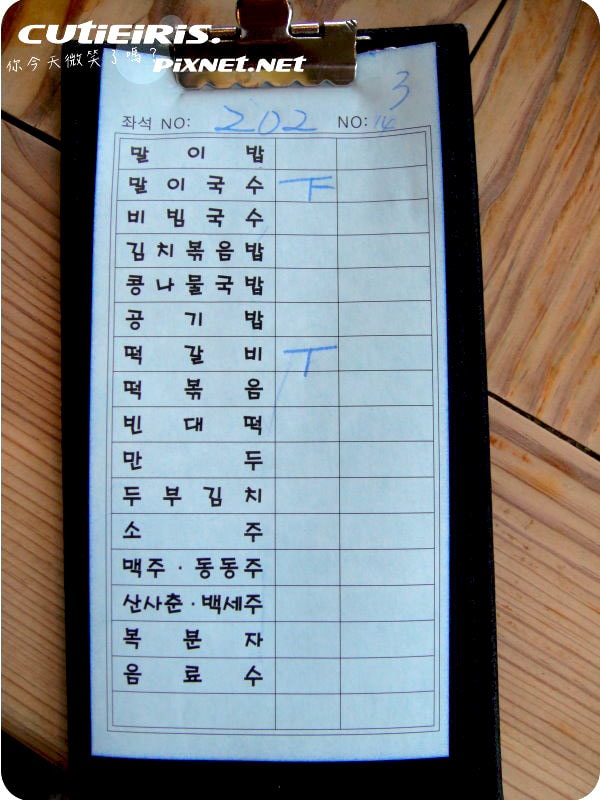 CUTiEiRiS.
你今天微笑了嗎?
PiXNET.NET
3
좌석 NO: 202 NO: 14
말이밥
말이국수 ㅜ
비빔국수
김치볶음밥
콩나물국밥
공기밥
떡갈비 ㅜ
떡볶음
빈대떡
만두
두부김치
소주
맥주·동동주
산사춘·백세주
복분자
음료수